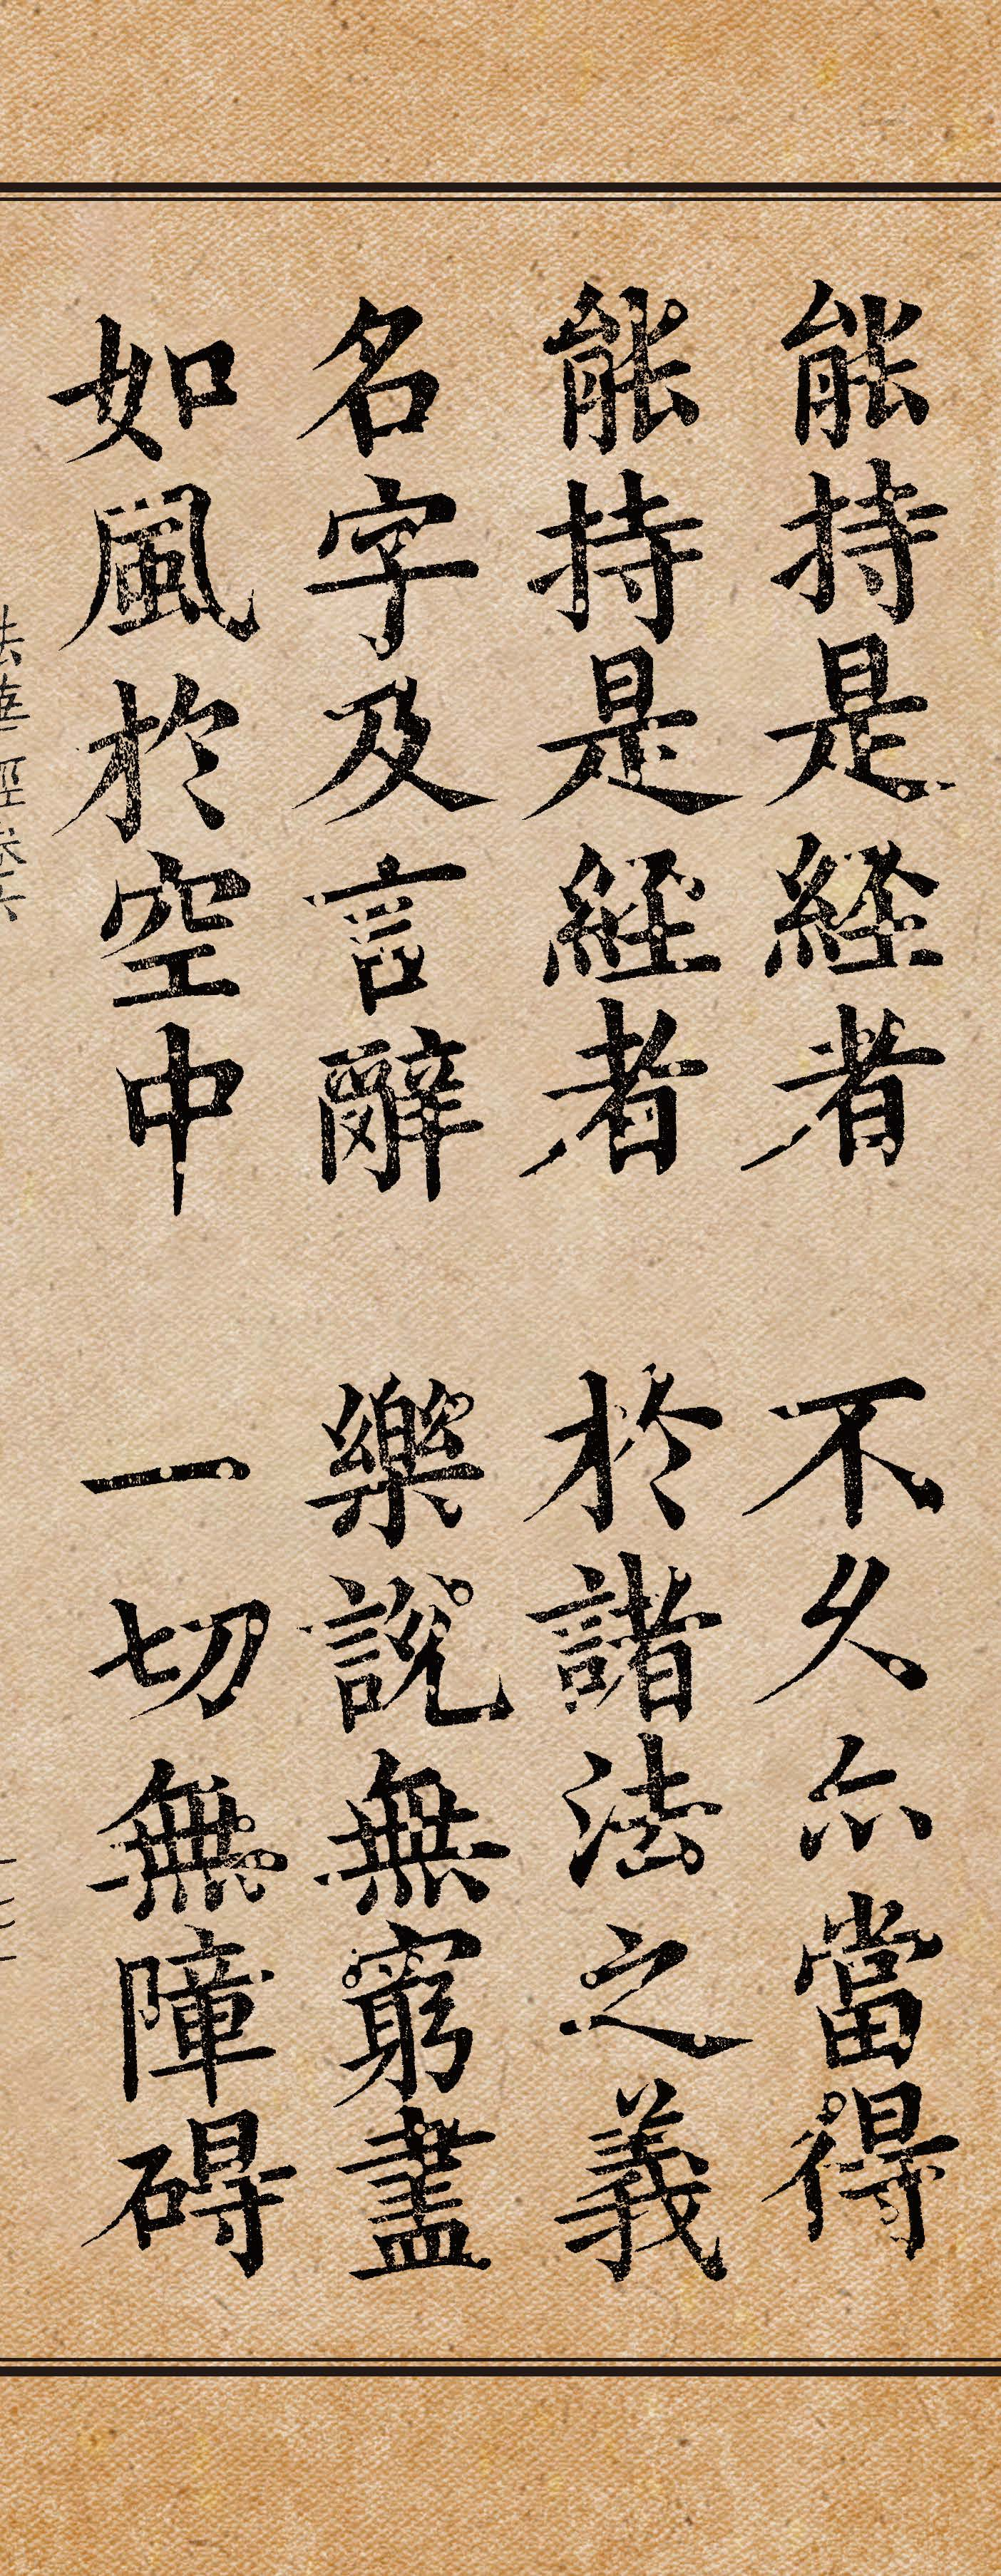 能持是経者　不久亦當得
能持是經者　於諸法之義
名字及言辭　樂說無窮盡
如風於空中　一切無障碍
法華經卷六